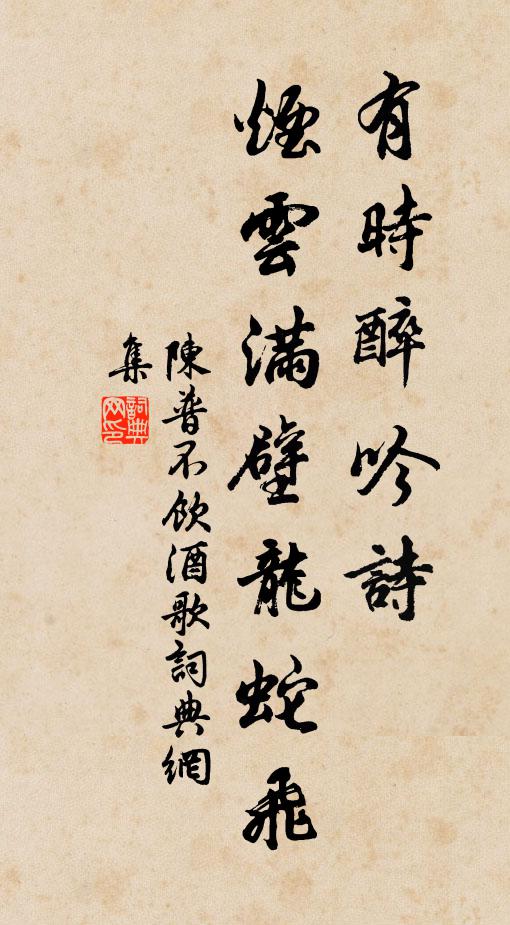 有時醉吟詩
煙雲滿壁龍蛇飛
陳普不飲酒歌詞典網
集
詞典
网印